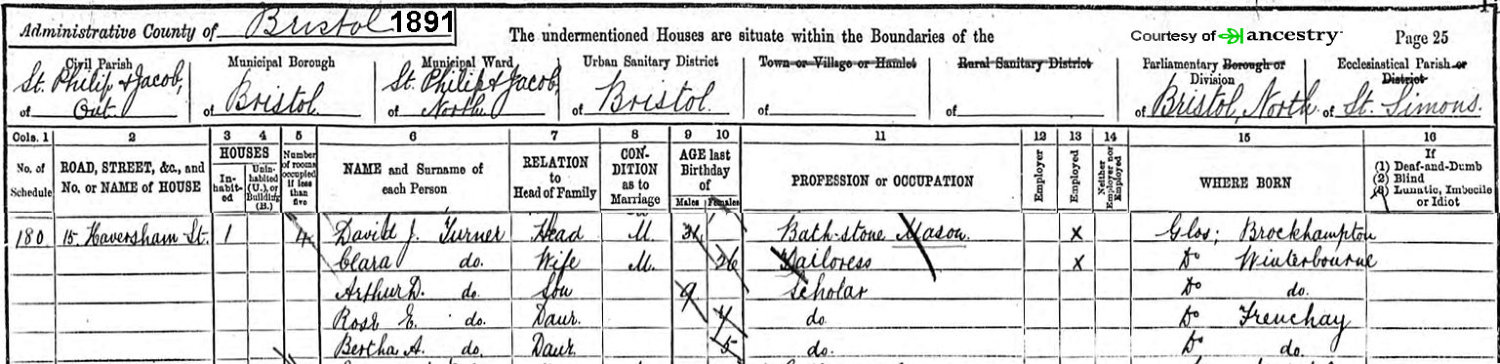 Administrative County of Bristol 1891
The undermentioned Houses are situate within the Boundaries of the
Courtesy of ancestry
Page 25
Civil Parish
of St. Philip & Jacob, Out
Municipal Borough
of Bristol
Municipal Ward
of St. Philip & Jacob, North
Urban Sanitary District
of Bristol.
Town or Village or Hamlet
of
Rural Sanitary District
of
Parliamentary Borough or Division
of Bristol, North
Ecclesiastical Parish or District
of St. Simons.
Cols. 1 2 3 4 5 6 7 8 9 10 11 12 13 14 15 16
No. of Schedule
ROAD, STREET, &c., and No. or NAME of HOUSE
HOUSES
In-habit-ed
Unin-habited (U.), or Building (B.)
Number of rooms occupied if less than five
NAME and Surname of each Person
RELATION to Head of Family
CON-DITION as to Marriage
AGE last Birthday of
Males Females
PROFESSION or OCCUPATION
Employer
Employed
Neither Employer nor Employed
WHERE BORN
If
(1) Deaf-and-Dumb
(2) Blind
(3) Lunatic, Imbecile or Idiot
180 15 Haversham St. 1 4 David J. Turner Head M. Bath-stone Mason. X Glos; Brockhampton
Clara do. Wife M. 26 Tailoress X Do Winterbourne
Arthur D. do. Son 9 Scholar Do do.
Rose E. do. Daur. do. Do Frenchay
Bertha A. do. Daur. 5 do. Do do.